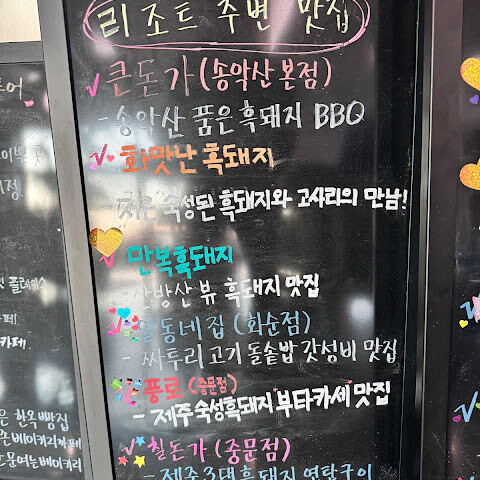 리조트 주변 맛집
큰돈가 (송악산본점)
- 송악산 품은 흑돼지 BBQ
화맛난 흑돼지
숙성된 흑돼지와 고사리의 만남!
만복흑돼지
산방산 뷰 흑돼지 맛집
동네집 (화순점)
- 짜투리고기 돌솥밥 갓성비 맛집
풍로 (중문점)
- 제주숙성흑돼지 부타카세 맛집
칠돈가 (중문점)
- 제주3대흑돼지 연탄구이
투어
카페
카페.
은 한옥빵집
베이커리카페
문여는베이커리